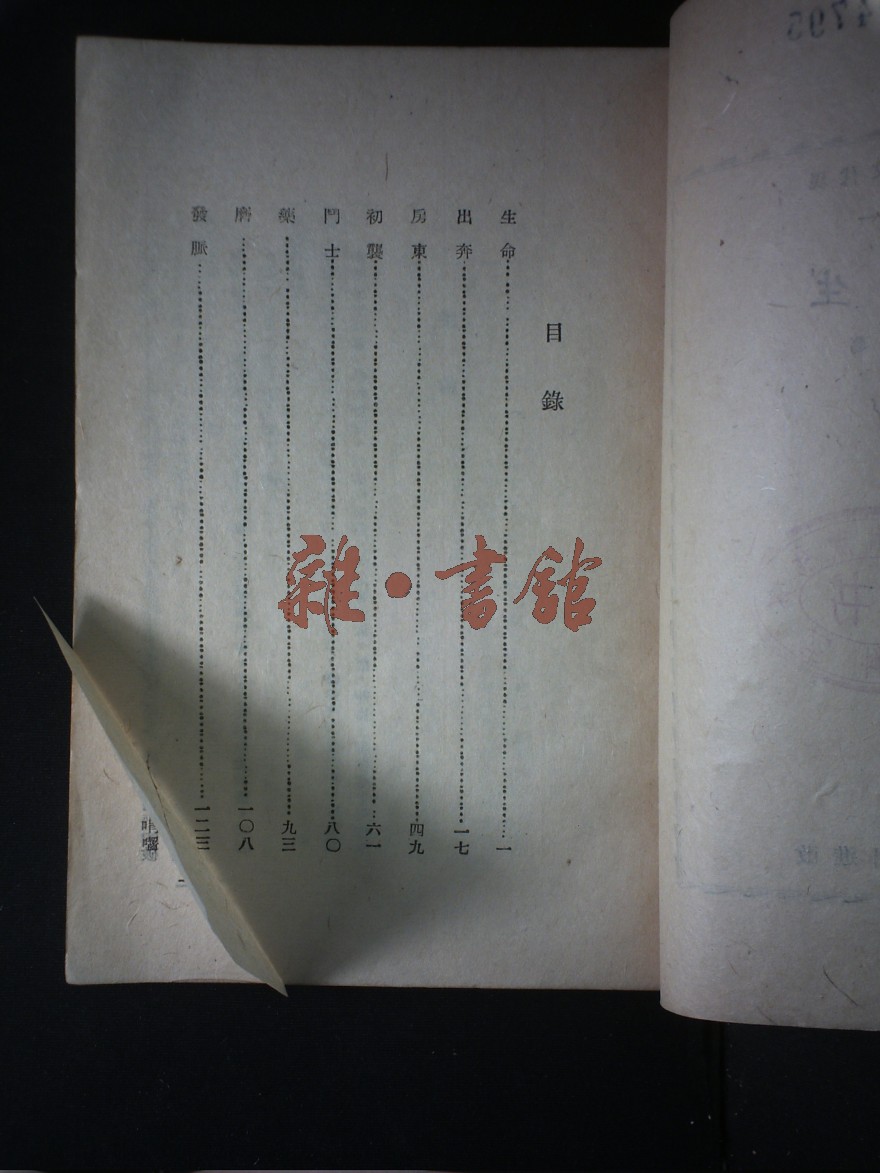 目錄
生命 一
出奔 一七
房東 四九
初襲 六一
鬥士 八〇
藥 九三
磨 一〇八
發脈 一二三
二
雜·書館